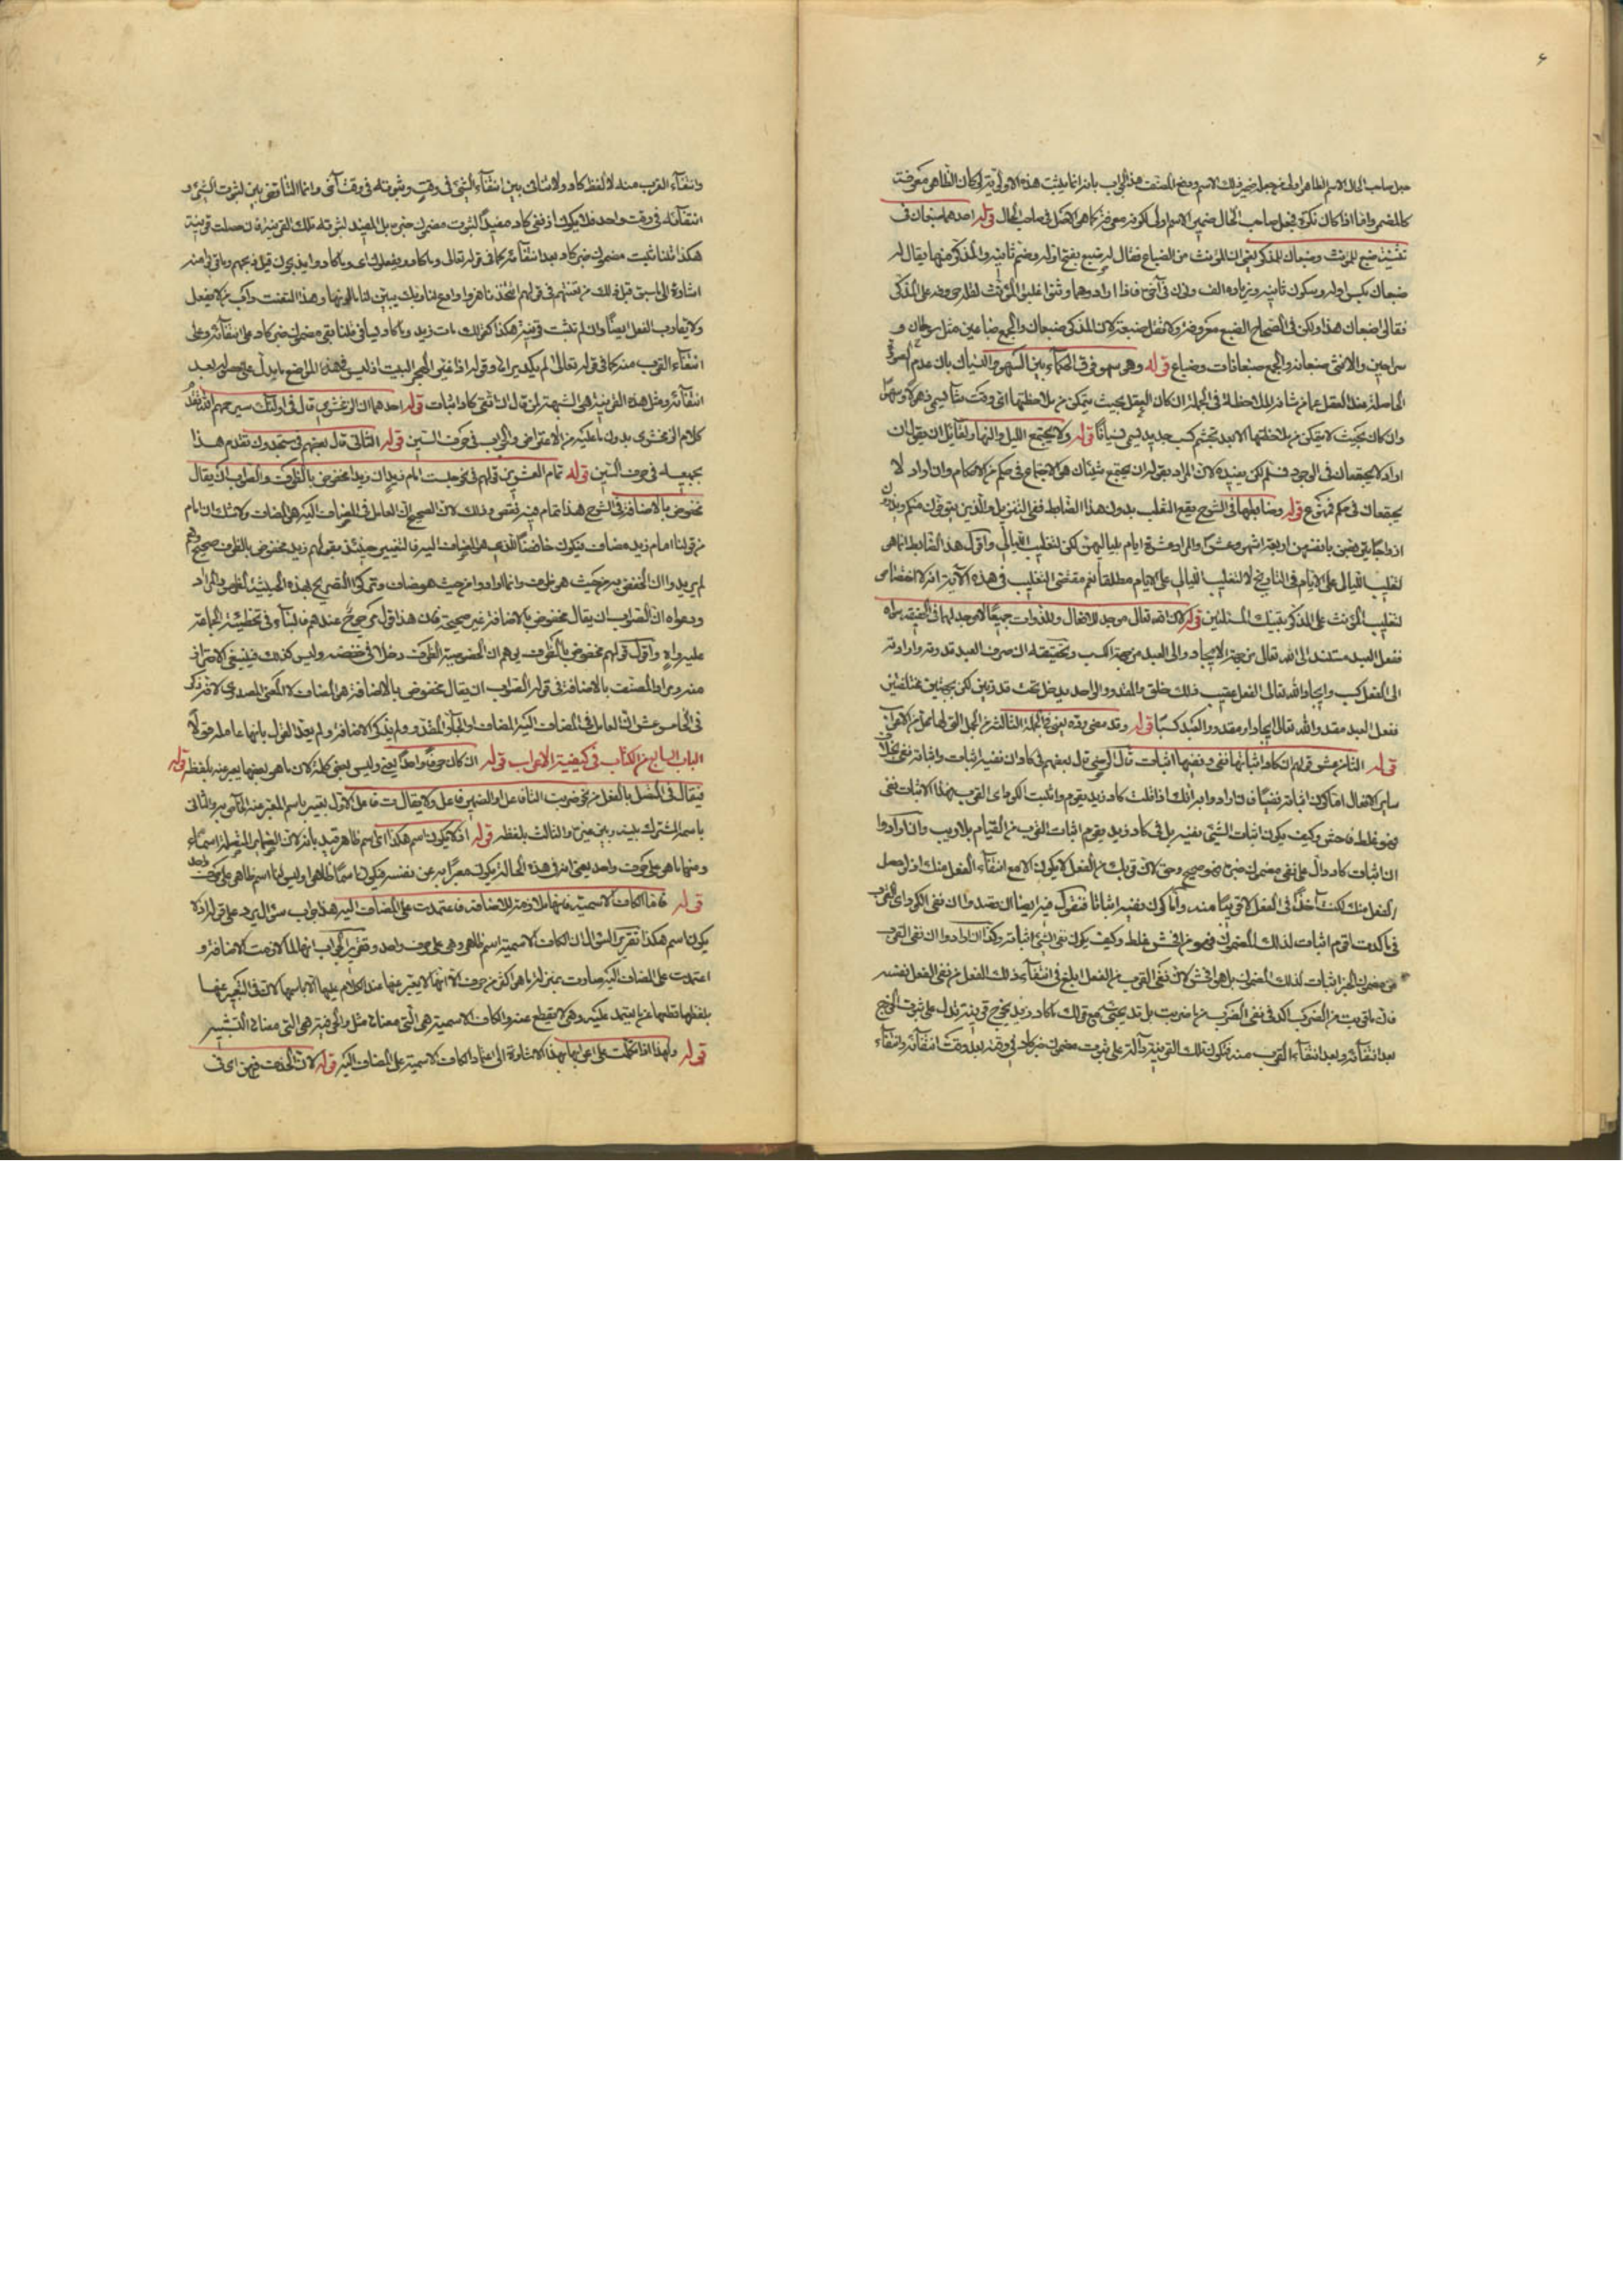 ٦
جعل صاحب الحال الاسم الظاهر اولى من جعله ضمير ذلك الاسم ودفع المصنف هذا الجواب بانه انما يثبت هذه الاولوية لو كان الظاهر معرفة
كالمضمر واما اذا كان نكرة فجعل صاحب الحال ضمير الاسم اولى لكونه معرفة كما هو الاصل في صاحب الحال قوله احدهما ضبعان في
تثنية ضبع للمؤنث وضبعان للمذكر يعني ان المؤنث من الضباع يقال له ضبع بفتح اوله وضم ثانيه والمذكر منها يقال له
ضبعان بكسر اوله وسكون ثانيه وزيادة الف ونون في آخره فاذا ارادوهما وثنوا غلبوا المؤنث لقلة حروفه على المذكر
فقالوا ضبعان هذا ولكن في الصحاح الضبع معروفة ولا تقل ضبعة لان المذكر ضبعان والجمع ضباعين مثل سرحان و
سراحين والانثى ضبعانة والجمع ضبعانات وضباع قوله وهو سهو فرق الحكماء بين السهو والنسيان بان عدم الصورة
الحاصلة عند العقل عما من شانه الملاحظة في الجملة ان كان العقل بحيث يتمكن من ملاحظتها اي وقت شآء يسمى ذهولا وسهوا
وان كان بحيث لا يتمكن من ملاحظتها الا بعد تجشم كسب جديد يسمى نسيانا قوله ولا يجتمع الليل والنهار ولقائل ان يقول ان
اراد لا يجتمعان في الوجود فمسلم لكن لا يفيده لان المراد بقوله ان يجتمع شيئان هو الاجتماع في حكم من الاحكام وان اراد لا
يجتمعان في حكم فممنوع قوله وضابطها في الشرح يقع التغلب بدون هذا الضابط ففي التنزيل والذين يتوفون منكم ويذرون
ازواجا يتربصن بانفسهن اربعة اشهر وعشرا والمراد عشرة ايام بلياليهن لكن لتغليب الليالي واقول هذا الضابط انما هو
لتغليب الليالي على الايام في التاريخ لا لتغليب الليالي على الايام مطلقا نعم مقتضى التغليب في هذه الآية انه لا اختصاص
لتغليب المؤنث على المذكر بتينك المسئلتين قوله لان الله تعالى موجد للافعال وللذوات جميعا لا موجد لهما في الحقيقة سواه
ففعل العبد مستند الى الله تعالى من جهة الايجاد والى العبد من جهة الكسب وتحقيقه ان صرف العبد قدرته وارادته
الى الفعل كسب وايجاد الله تعالى الفعل عقيب ذلك خلق والمقدور الواحد يدخل تحت قدرتين لكن بجهتين مختلفتين
ففعل العبد مقدور الله تعالى ايجادا ومقدور العبد كسبا قوله وقد مضى رده يعني في الجملة الثالثة من الجمل التي لها محل من الاعراب
قوله الثامن عشر قولهم ان كاد اثباتها نفي ونفيها اثبات قال الرضي قال بعضهم في كاد ان نفيه اثبات واثباته نفي بخلاف
ساير الافعال اما كون اثباته نفيا فان ارادوا به انك اذا قلت كاد زيد يقوم واثبت الكود اي القرب فهذا الاثبات نفي
فهو غلط فاحش وكيف يكون اثبات الشيء نفيه بل في كاد زيد يقوم اثبات القرب من القيام بلا ريب وان ارادوا
ان اثبات كاد دال على نفي مضمون خبره فهو صحيح وحق لان قربك من الفعل لا يكون الا مع انتفاء الفعل منك اذ لو حصل
الفعل منك لكنت آخذا في الفعل لا قريبا منه واما كون نفيه اثباتا فنقول فيه ايضا ان قصدوا ان نفي الكود اي القرب
في ما كدت اقوم اثبات لذلك المضمون فهو من افحش غلط وكيف يكون نفي الشيء اثباته وكذا ان ارادوا ان نفي القرب
من مضمون الخبر اثبات لذلك المضمون بل هو افحش لان نفي القرب من الفعل ابلغ في انتفاء ذلك الفعل من نفي الفعل نفسه
فان ما قربت من الضرب آكد في نفي الضرب من ما ضربت بل قد يجيء مع قولك ما كاد زيد يخرج قرينة تدل على ثبوت الخروج
بعد انتفائه وبعد انتفاء القرب منه فتكون تلك القرينة دالة على ثبوت مضمون خبر كاد في وقت بعد وقت انتفائه وانتفاء
وانتفاء القرب منه لا لفظ كاد ولا تنافي بين انتفاء الشيء في وقت وثبوته في وقت آخر وانما التناقض بين ثبوت الشيء و
انتفائه في وقت واحد فلا يكون اذ نفي كاد مفيدا لثبوت مضمون خبره بل المفيد لثبوته تلك القرينة فان حصلت قرينة
هكذا قلنا ثبت مضمون خبر كاد بعد انتفائه كما في قوله تعالى وما كادوا يفعلون اي وما كادوا يذبحون قبل ذبحهم وما قربوا منه
اشارة الى ما سبق قبل ذلك من تعنتهم في قولهم اتتخذنا هزوا وادع لنا ربك يبين لنا ما لونها وهذا التعنت دأب من لا يفعل
ولا يقارب الفعل ايضا وان لم تثبت قرينة هكذا كقولك مات زيد وما كاد يسافر قلنا بقي مضمون خبر كاد على انتفائه وعلى
انتفاء القرب منه كما في قوله تعالى لم يكد يراها وقوله اذا غير الهجر البيت اذ ليس في هذه المواضع ما يدل على حصوله بعد
انتفائه ومثل هذه القرينة هي الشبهة لمن قال ان نفي كاد اثبات قوله احدهما ان الزمخشري قال في اولئك سيرحمهم الله تقدم
كلام الزمخشري بدون ما عليه من الاعتراض والجواب في حرف السين قوله الثاني قال بعضهم في ستجدون تقدم هذا
بجميعه في حرف السين قوله تمام العشرين قولهم في نحو جلست امام زيد ان زيدا مخفوض بالظرف والصواب ان يقال
مخفوض بالاضافة في الشرح هذا تمام فيه نقص وذلك لان الصحيح ان العامل في المضاف اليه هو المضاف ولا شك ان امام
من قولنا امام زيد مضاف فيكون خافضا للذي هو المضاف اليه فالتفسير حينئذ بقولهم زيد مخفوض بالظرف صحيح وهم
لم يريدوا ان الخفض به من حيث هو ظرف وانما ارادوا من حيث هو مضاف وتركوا التصريح بهذه الحيثية لظهور المراد
ودعواه ان الصواب ان يقال مخفوض بالاضافة غير صحيحة فان هذا قول مرجوح عندهم فالبناء في تخطئة الجماعة
عليه واه واقول قولهم مخفوض بالظرف يوهم ان لخصوصية الظرف دخلا في خفضه وليس كذلك فينبغي الاحتراز
منه ومراد المصنف بالاضافة في قوله الصواب ان يقال مخفوض بالاضافة هو المضاف لا المعنى المصدري لانه ذكر
في الخامس عشر ان العامل في المضاف اليه المضاف او الجار المقدر ولم يذكر الاضافة ولم يعد القول بانها عاملة قولا
الباب السابع من الكتاب في كيفية الاعراب قوله ان كان حرفا واحدا يعني وليس بعض كلمة لان ما هو بعضها يعبر عنه بلفظه قوله
فيقال في المتصل بالفعل من نحو ضربت التاء فاعل او الضمير فاعل ولا يقال ت فاعل الاول تعبير باسم المعبر عنه الخاص به والثاني
باسمه المشترك بينه وبين غيره والثالث بلفظه قوله اذ لا يكون اسم هكذا اي اسم ظاهر قيد بانه لان الضماير المتصلة اسماء
ومنها ما هو على حرف واحد يعني انه في هذه الحالة يكون معبرا به عن نفسه فيكون اسما ظاهرا وليس لنا اسم ظاهر على حرف واحد
قوله فاما الكاف الاسمية فانها ملازمة للاضافة فاعتمدت على المضاف اليه هذا جواب سؤال يرد على قوله اذ لا
يكون اسم هكذا تقرير السؤال ان الكاف الاسمية اسم ظاهر وهي على حرف واحد وتقرير الجواب انها لما لازمت الاضافة و
اعتمدت على المضاف اليه صارت بمنزلة ما هو اكثر من حرف الا انها لا يعبر عنها عند الكلام عليها الا باسمها لان في التعبير عنها
بلفظها قطعها عما يعتمد عليه وهي لا يقطع عنه والكاف الاسمية هي التي معناها مثل والحرفية هي التي معناها التشبيه
قوله ولهذا اذا تكلمت على اعرابها هذا الاشارة الى اعتماد الكاف الاسمية على المضاف اليه قوله لان الحذف فيهن اي في